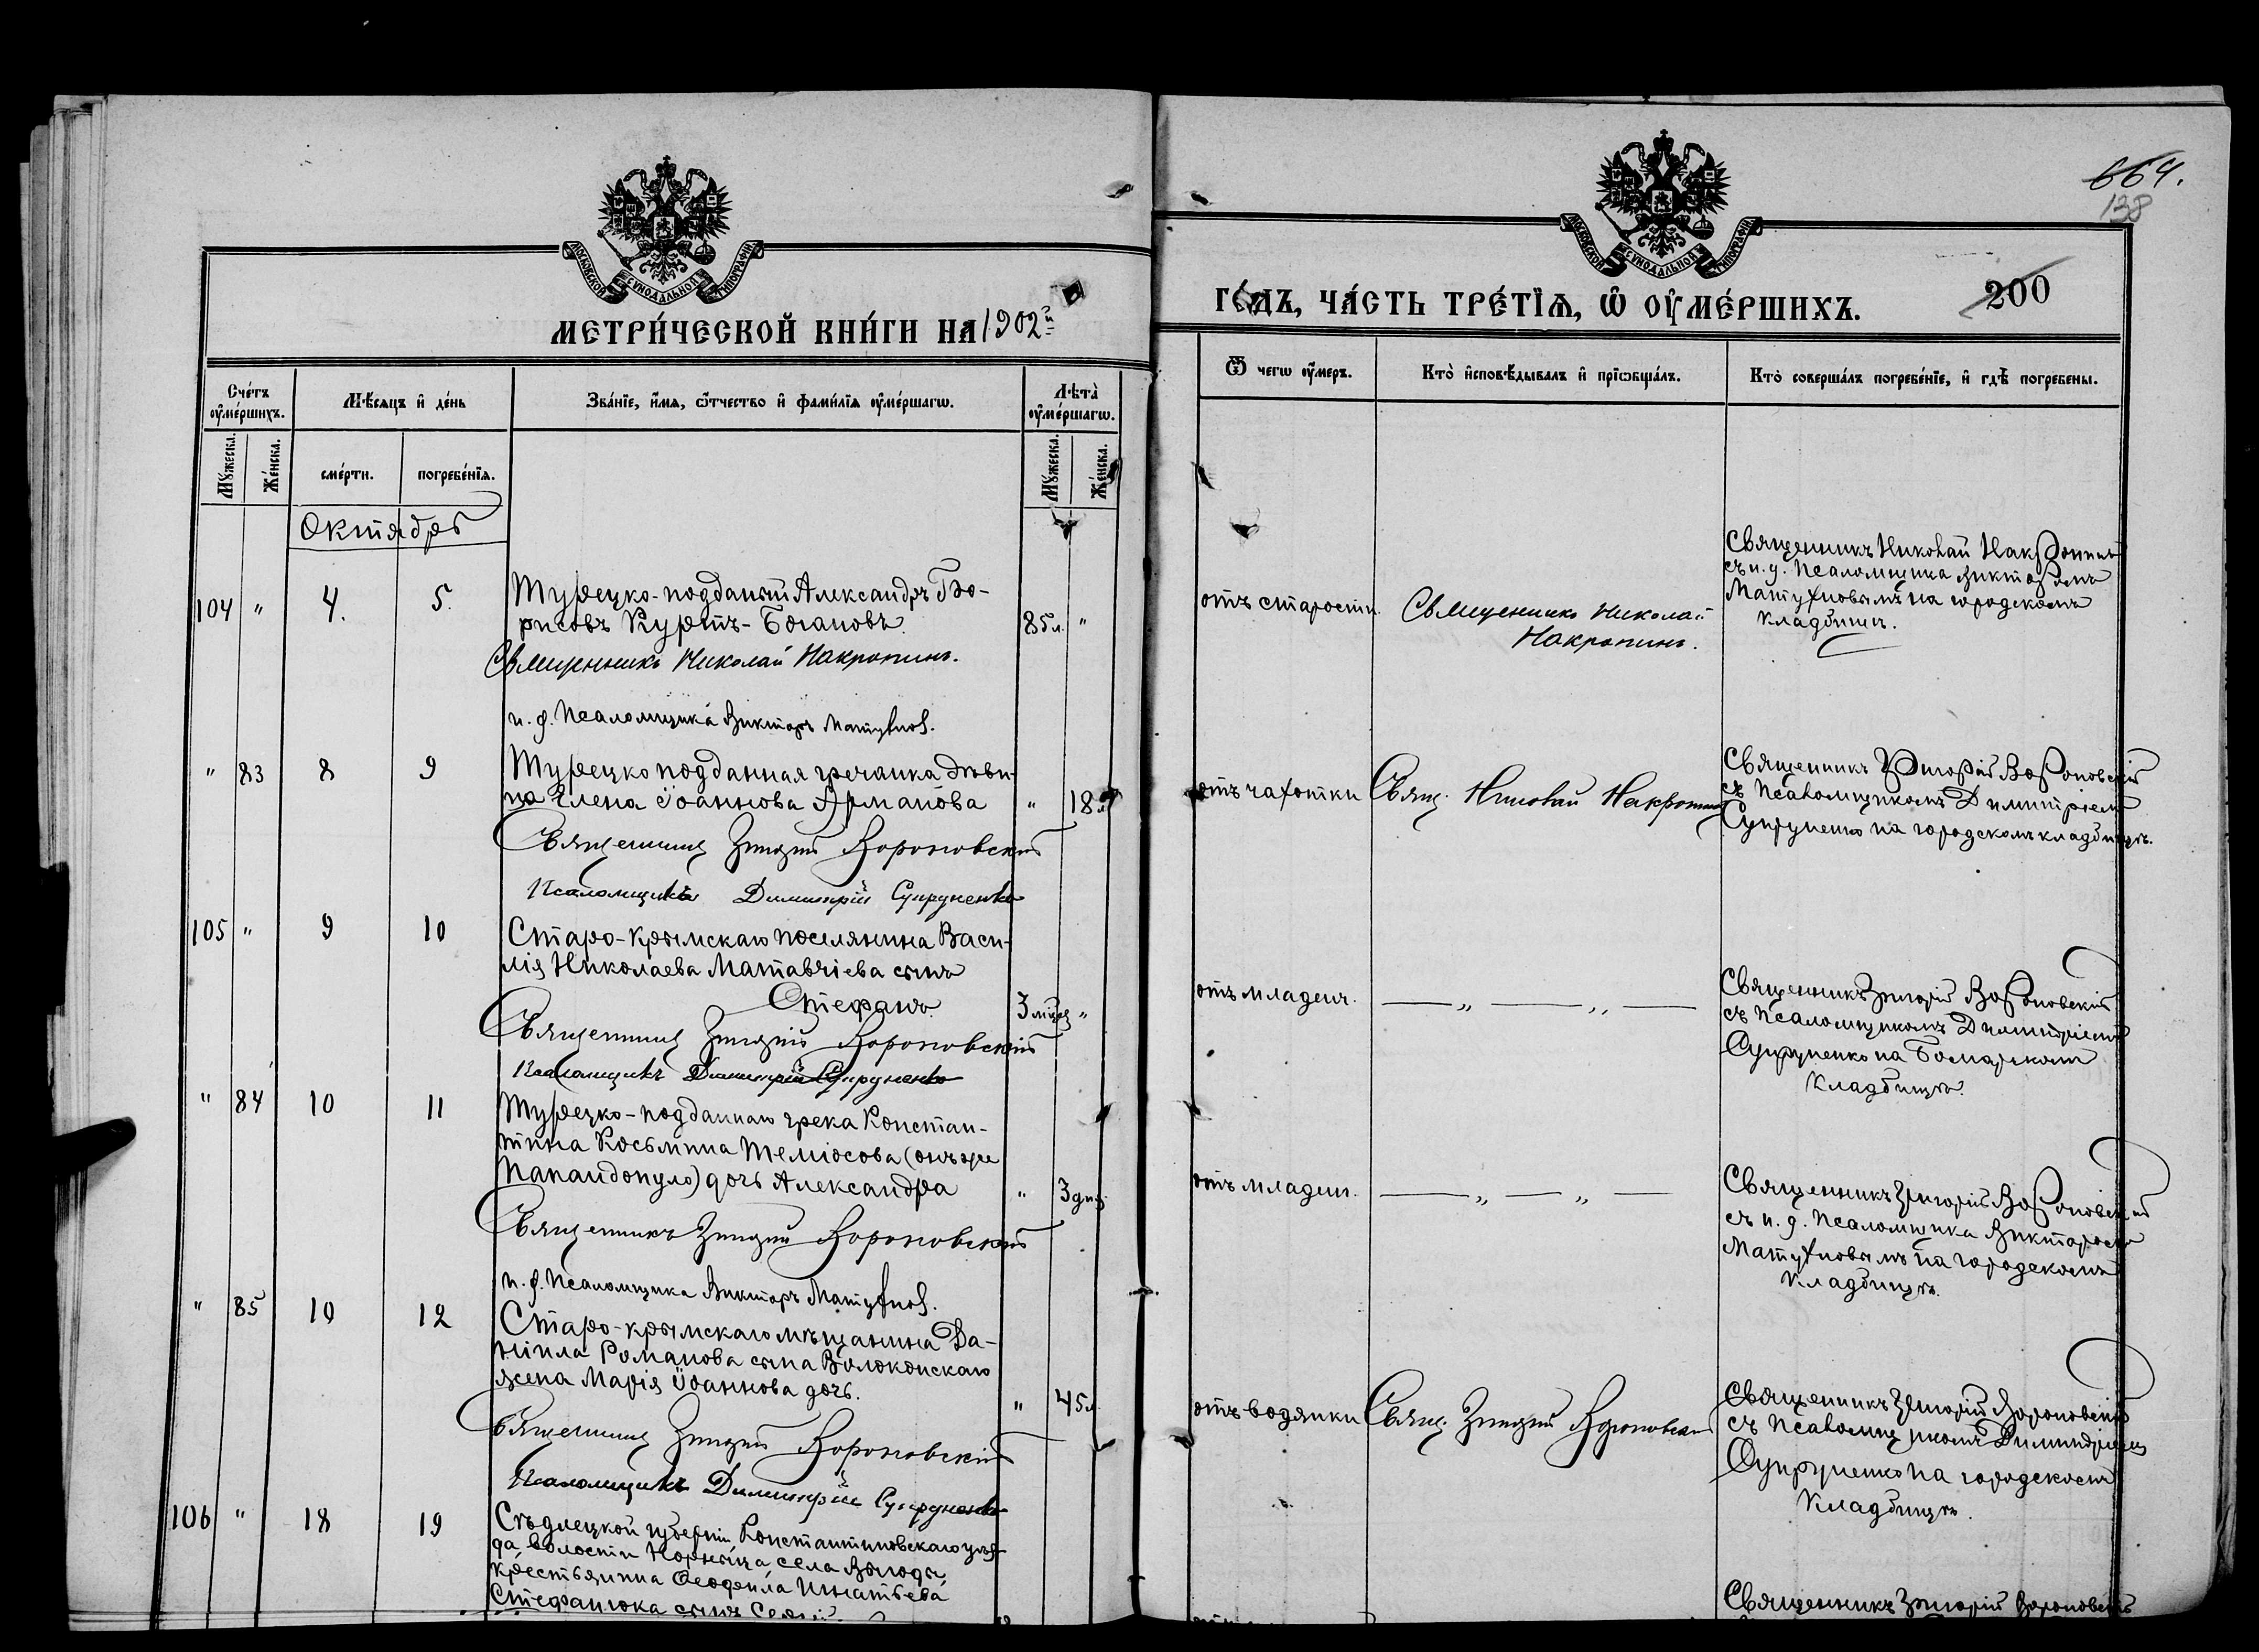 664.
138
МОСКОВСКОЙ СѴНОДАЛЬНОЙ ТИПОГРАФІИ
МОСКОВСКОЙ СѴНОДАЛЬНОЙ ТИПОГРАФІИ
МЕТРИ́ЧЕСКОЙ КНИ́ГИ НА 1902й
ГО́ДЪ, ЧА́СТЬ ТРЕ́ТІѦ, Ѡ҆ ОУ҆МЕ́РШИХЪ.
200
Сче́тъ оу҆ме́ршихъ.
Мѣ́сяцъ и҆ де́нь
Зва́нїе, и҆́мя, ѻ҆́тчество и҆ фами́лїя оу҆ме́ршагѡ.
Лѣта̀ оу҆ме́ршагѡ.
Ѿ чегѡ оу҆́меръ.
Кто̀ и҆сповѣ́дывалъ и҆ прїѡбща́лъ.
Кто̀ соверша́лъ погребе́нїе, и҆ гдѣ̀ погребены.
Му́жеска.
Же́нска.
сме́рти.
погребе́нїя.
Му́жеска.
Же́нска.
Октябрь
104 " 4. 5.
Турецко-подданый Александръ Бо-
рисовъ Куртъ-Богановъ.
85 л. "
Священникъ Николай Накропинъ.
и. д. Псаломщика Викторъ
отъ старости.
Священникъ Николай
Накропинъ.
Священникъ Николай Накропинъ
съ и. д. Псаломщика Викторомъ
на городскомъ
кладбищѣ.
" 83 8 9
Турецко подданная гречанка дѣви-
ца Елена Іоаннова Арманова
" 18 л.
Священникъ Григорій Вороновскій
Псаломщикъ Димитрій Супруненко
отъ чахотки
Свящ. Николай Накропинъ
Священникъ Григорій Вороновскій
съ Псаломщикомъ Димитріемъ
Супруненко на городскомъ кладбищѣ.
105 " 9 10
Старо-Крымскаго поселянина Васи-
лія Николаева Матавчіева сынъ
Стефанъ.
3 мѣсяц "
Священникъ Григорій Вороновскій
Псаломщикъ Димитрій Супруненко
отъ младенч.
— „ — „ —
Священникъ Григорій Вороновскій
съ Псаломщикомъ Димитріемъ
Супруненко на
кладбищѣ.
" 84 10 11
Турецко-подданнаго грека Констан-
тина Косьмина Теміосова (онъ же
Папандопуло) дочь Александра
" 3 дня.
Священникъ Григорій Вороновскій
и. д. Псаломщика Викторъ
отъ младенч.
— „ — „ —
Священникъ Григорій Вороновскій
съ и. д. Псаломщика Викторомъ
на городскомъ
кладбищѣ.
" 85 10 12
Старо-крымскаго мѣщанина Да-
ніила Романова сына Волоконскаго
жена Марія Іоаннова дочь.
" 45 л.
Священникъ Григорій Вороновскій
Псаломщикъ Димитрій Супруненко
отъ водянки
Свящ. Григорій Вороновскій
Священникъ Григорій Вороновскій
съ Псаломщикомъ Димитріемъ
Супруненко на городскомъ
кладбищѣ.
106 " 18 19
Сѣдлецкой губерніи Константиновскаго уѣз-
да, волости Корница села
крестьянина Ѳеофила Игнатьева
Стефанюка сынъ
Священникъ Григорій Вороновскій